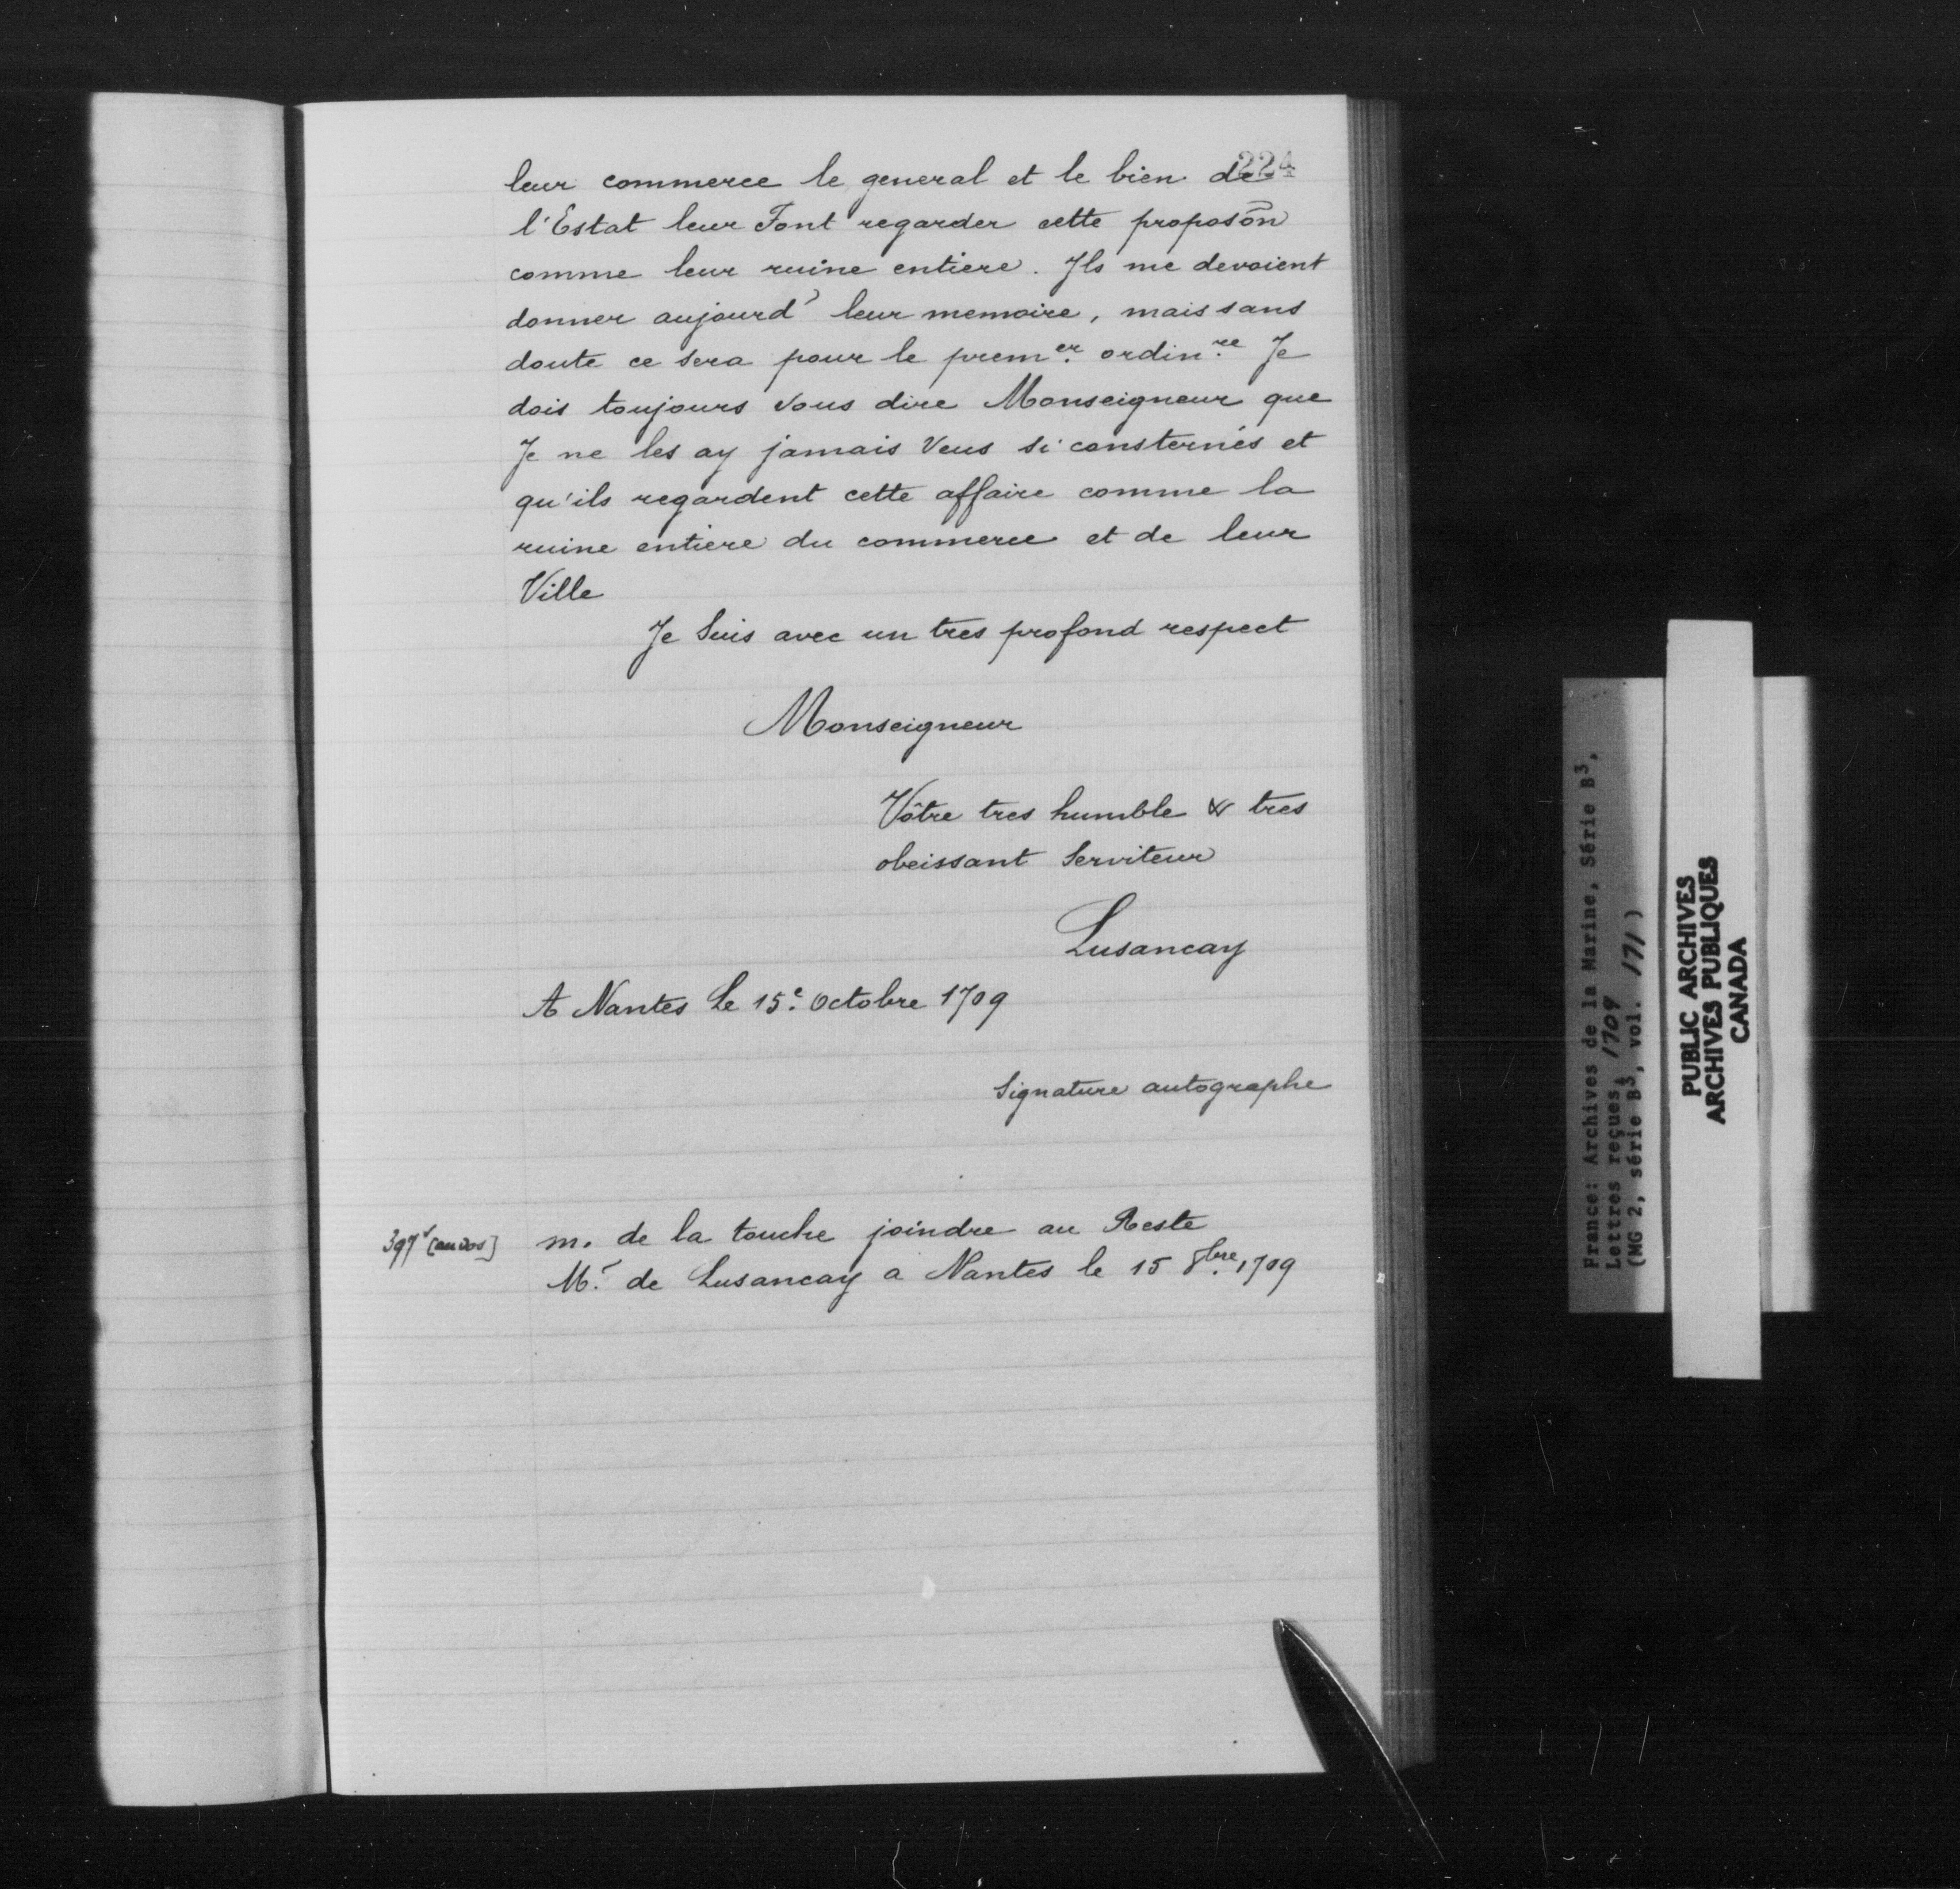 224
leur commerce le general et le bien de
l'Estat leur Font regarder cette proposõn
comme leur ruine entiere. Ils me devoient
donner aujourd' leur memoire, mais sans
doute ce sera pour le prem.er ordin.re Je
dois toujours vous dire Monseigneur que
Je ne les ay jamais Veus si consternés et
qu'ils regardent cette affaire comme la
ruine entiere du commerce et de leur
Ville
Je suis avec un tres profond respect
Monseigneur
Vôtre tres humble & tres
obeissant serviteur
Lusancay
A Nantes Le 15.e Octobre 1709
Signature autographe
397v [au dos] m. de la touche joindre au Reste
M.r de Lusancay a Nantes le 15 8bre. 1709
France: Archives de la Marine, Série B3,
Lettres reçues, 1709
(MG 2, série B3, vol. 171)
PUBLIC ARCHIVES
ARCHIVES PUBLIQUES
CANADA